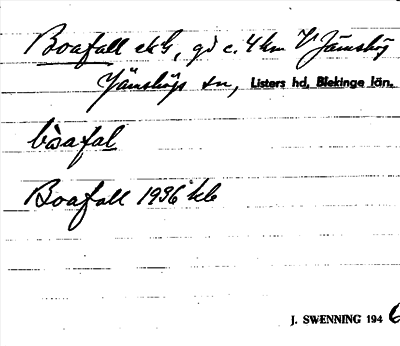 Boafall ekbl, gd c. 4 km V Jämshög
Jämshögs sn, Listers hd, Blekinge län.
bòafal
Boafall 1936 kb
J. SWENNING 1946